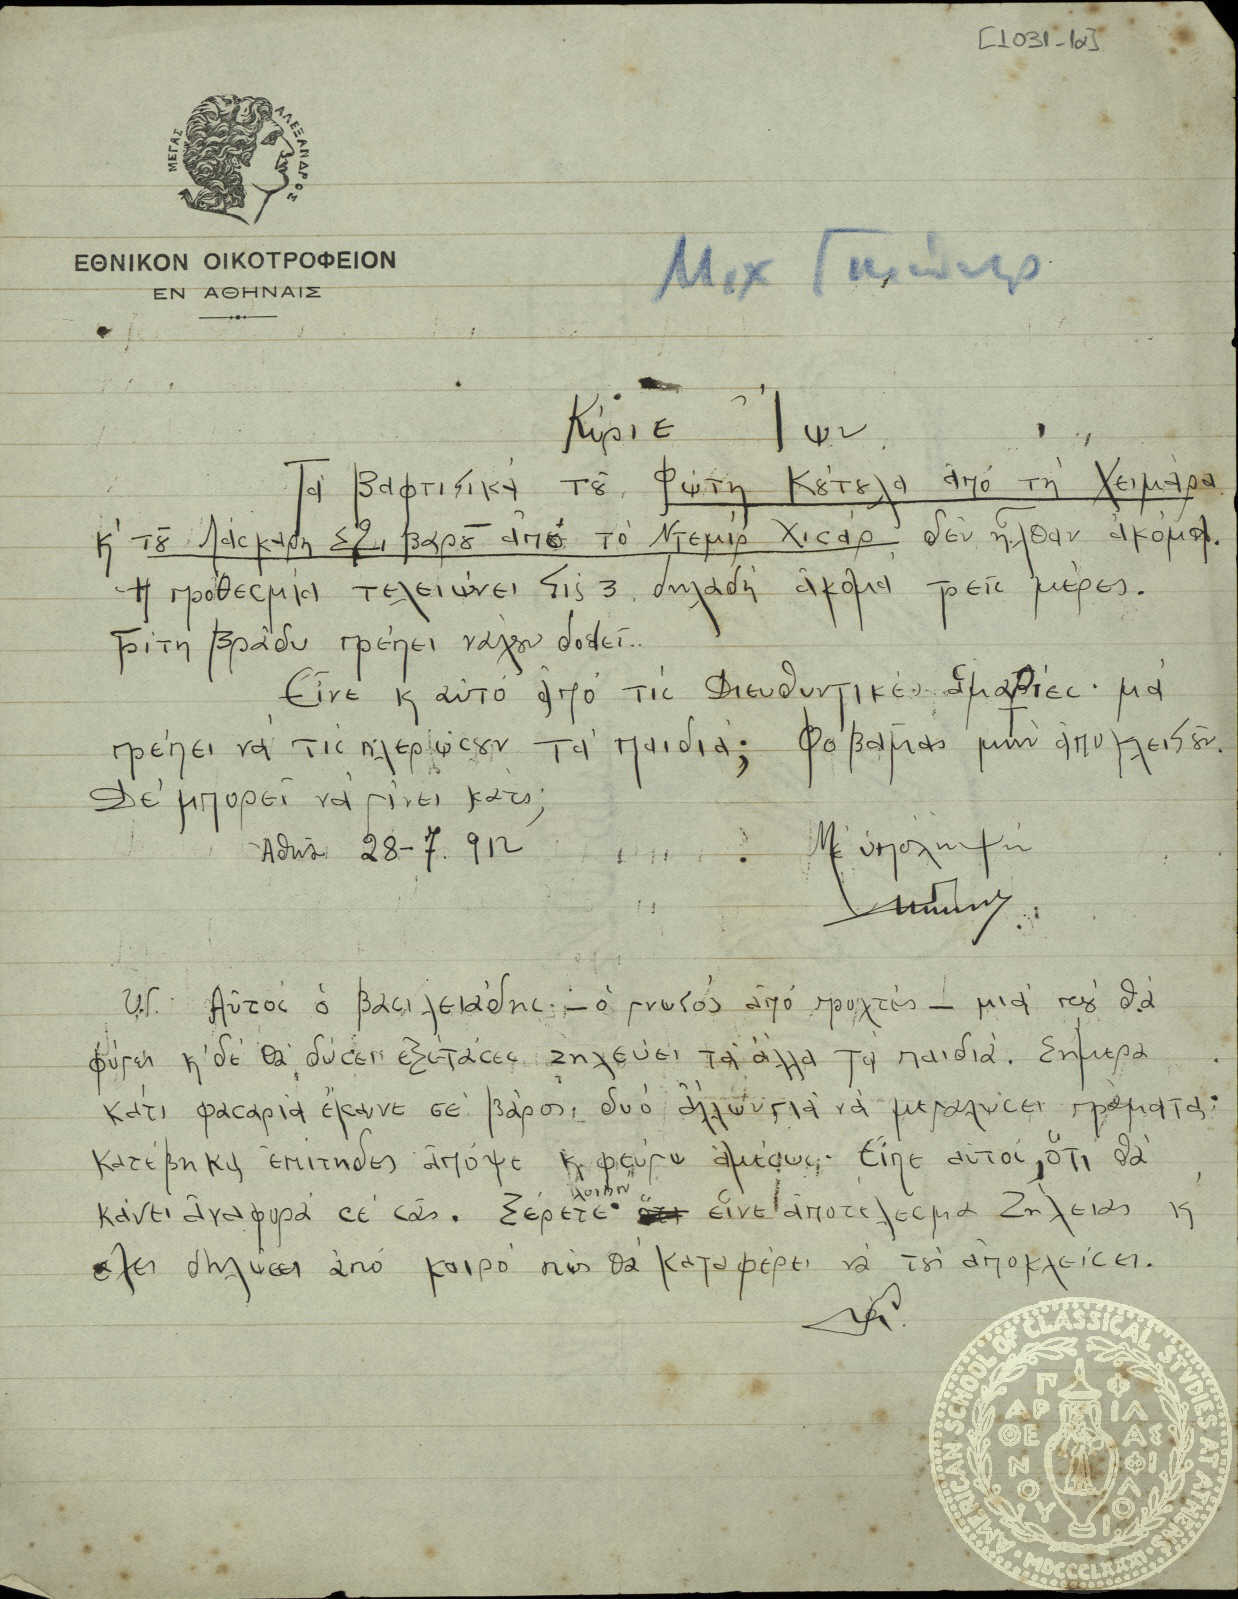 [1031-1α]
ΜΕΓΑΣ ΑΛΕΞΑΝΔΡΟΣ
ΕΘΝΙΚΟΝ ΟΙΚΟΤΡΟΦΕΙΟΝ
ΕΝ ΑΘΗΝΑΙΣ
Μιχ
Κύριε Ἴων
Τὰ βαφτισικὰ τοῦ Φώτη Κούτουλα ἀπό τή Χειμάρα
κὶ τοῦ Λάσκαρη ἀπό τό Ντεμίρ Χισάρ δέν ἦλθαν ἀκόμα.
Ἡ προθεσμία τελειώνει στίς 3 δηλαδή ἀκόμα τρεῖς μέρες.
Τρίτη βράδυ πρέπει νάχουν δοθεῖ..
Εἶνε κ αὐτό ἀπό τίς Διευθυντικές ἁμαρτίες· μά
πρέπει νά τίς πλερώσουν τά παιδιά; Φοβᾶμαι μήν ἀποκλεισθοῦν.
Δέ μπορεῖ νά γίνει κάτι;
Ἀθήνα 28-7. 912
Μέ ὑπόληψη
Υ.Γ. Αὐτός ὁ Βασιλειάδης - ὁ γνωστός ἀπό προχτές - μιά πού θά
φύγει κ δέ θά δώσει ἐξετάσεις ζηλεύει τά ἄλλα τά παιδιά. Σήμερα
κάτι φασαρία ἔκανε σέ βάρος δυό ἄλλων γιά νά μεγαλώσει πράματα.
Κατέβηκα ἐπίτηδες ἀπόψε κ φεύγω ἀμέσως. Εἶπε αὐτός, ὅτι θά
κάνει ἀναφορά σέ σᾶς. Ξέρετε λοιπόν εἶνε ἀποτέλεσμα ζήλειας κ
ἔχει δηλώσει ἀπό καιρό πώς θά καταφέρει νά τούς ἀποκλείσει.
AMERICAN SCHOOL OF CLASSICAL STUDIES AT ATHENS
ΠΑΡΘΕΝΟΥ ΦΙΛΑΣ ΦΙΛΟΙ
MDCCCLXXXI